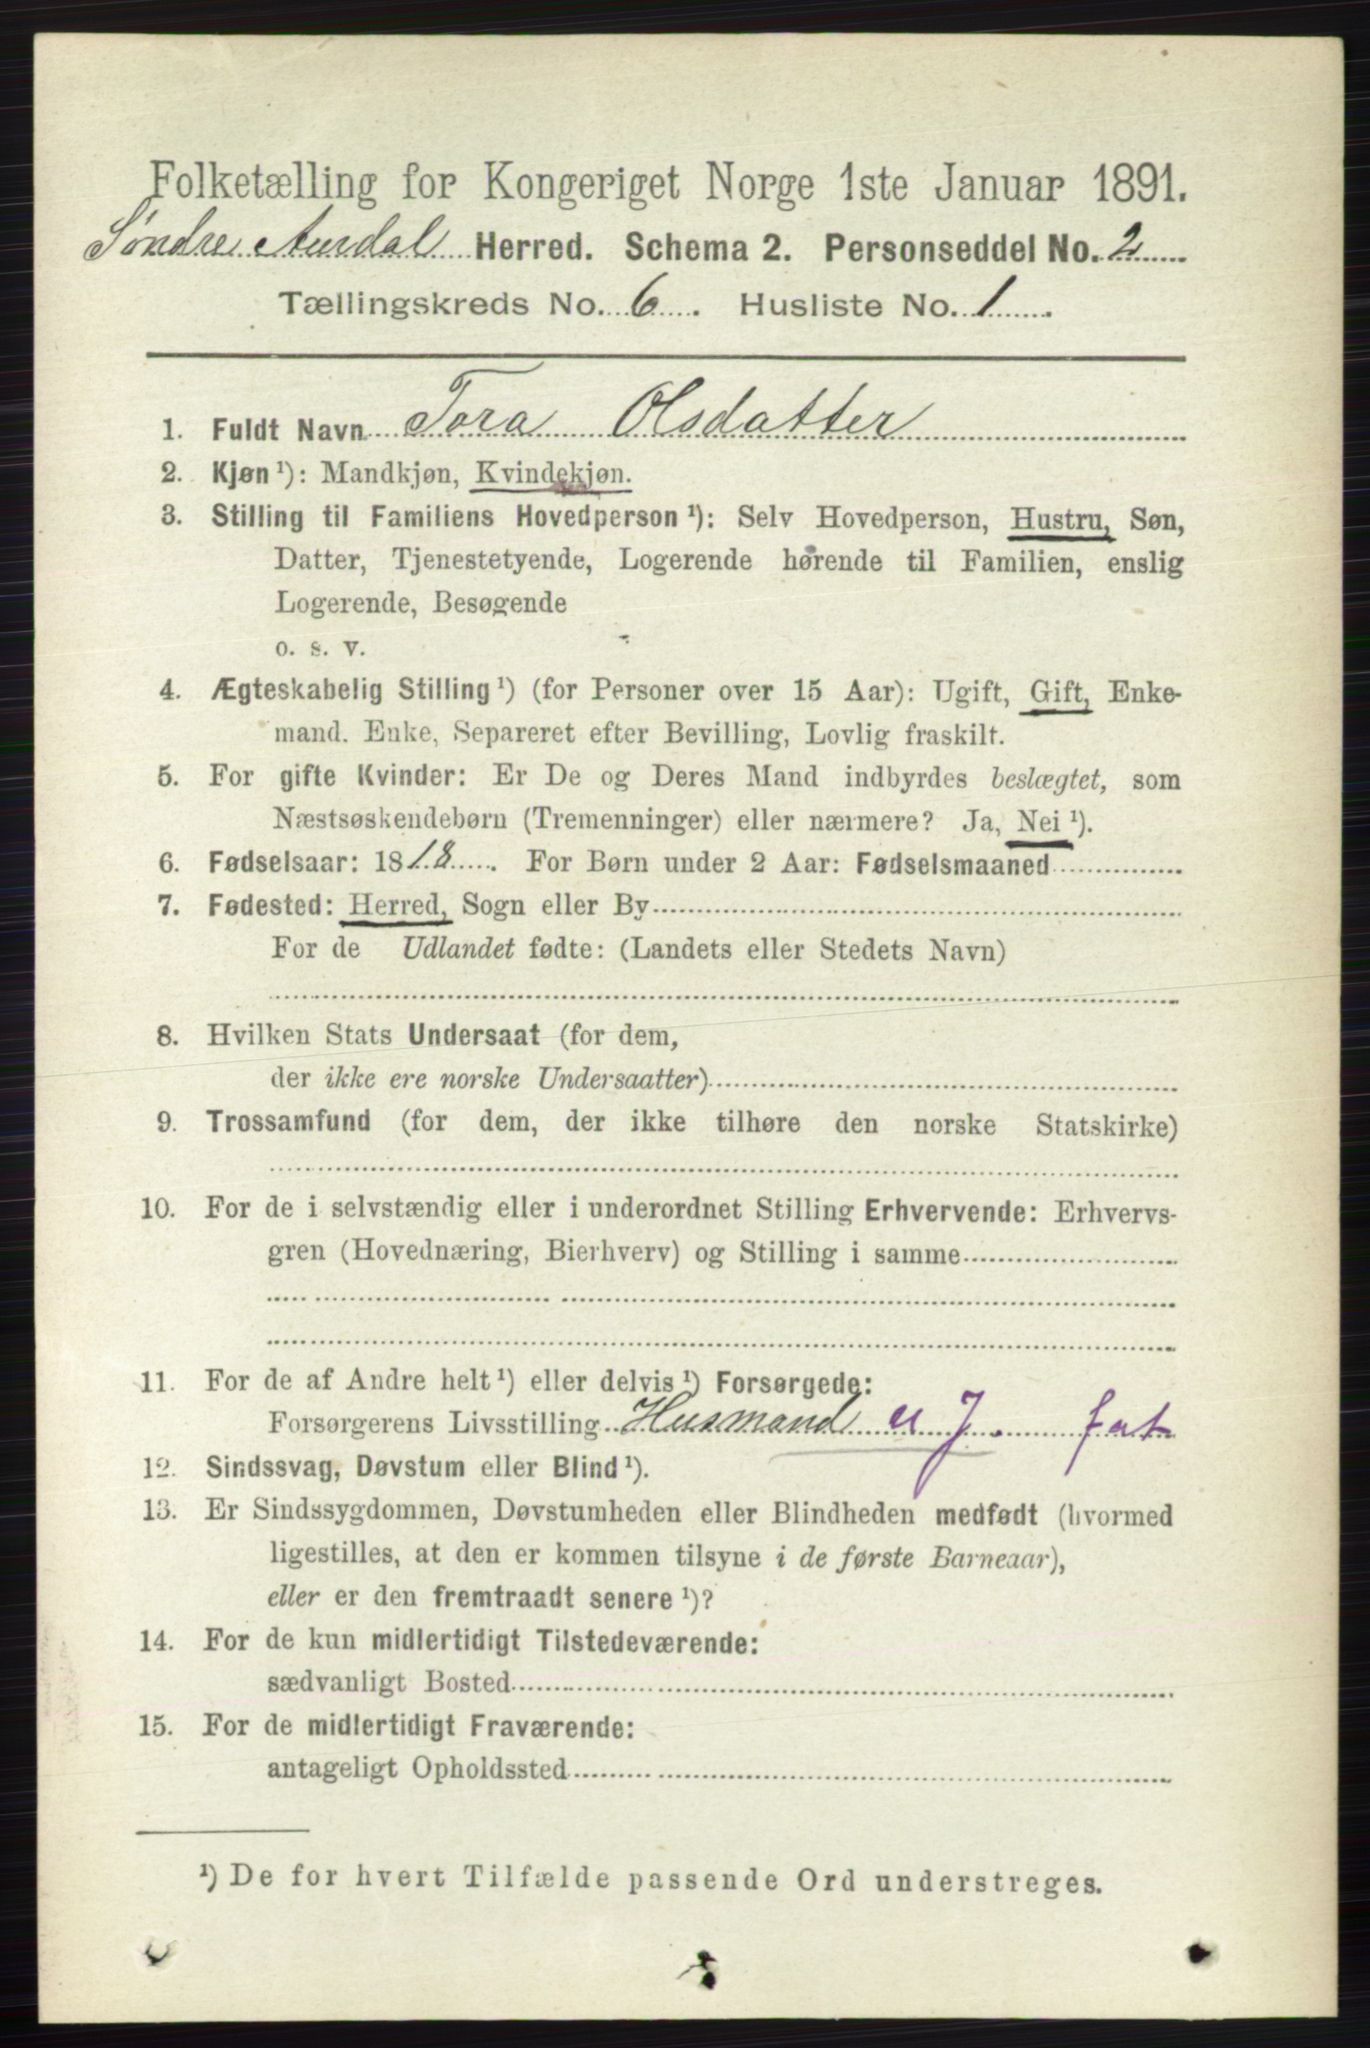 Folketælling for Kongeriget Norge 1ste Januar 1891.
Søndre Aurdal Herred. Schema 2. Personseddel No. 2
Tællingskreds No. 6. Husliste No. 1.
1. Fuldt Navn Tora Olsdatter
2. Kjøn ¹): Mandkjøn, Kvindekjøn.
3. Stilling til Familiens Hovedperson ¹): Selv Hovedperson, Hustru, Søn,
Datter, Tjenestetyende, Logerende hørende til Familien, enslig
Logerende, Besøgende
o. s. v.
4. Ægteskabelig Stilling ¹) (for Personer over 15 Aar): Ugift, Gift, Enke-
mand. Enke, Separeret efter Bevilling, Lovlig fraskilt.
5. For gifte Kvinder: Er De og Deres Mand indbyrdes beslægtet, som
Næstsøskendebørn (Tremenninger) eller nærmere? Ja, Nei ¹).
6. Fødselsaar: 1818. For Børn under 2 Aar: Fødselsmaaned
7. Fødested: Herred, Sogn eller By
For de Udlandet fødte: (Landets eller Stedets Navn)
8. Hvilken Stats Undersaat (for dem,
der ikke ere norske Undersaatter)
9. Trossamfund (for dem, der ikke tilhøre den norske Statskirke)
10. For de i selvstændig eller i underordnet Stilling Erhvervende: Erhvervs-
gren (Hovednæring, Bierhverv) og Stilling i samme
11. For de af Andre helt ¹) eller delvis ¹) Forsørgede:
Forsørgerens Livsstilling Husmand u J. fat
12. Sindssvag, Døvstum eller Blind ¹).
13. Er Sindssygdommen, Døvstumheden eller Blindheden medfødt (hvormed
ligestilles, at den er kommen tilsyne i de første Barneaar),
eller er den fremtraadt senere ¹)?
14. For de kun midlertidigt Tilstedeværende:
sædvanligt Bosted
15. For de midlertidigt Fraværende:
antageligt Opholdssted
¹) De for hvert Tilfælde passende Ord understreges.